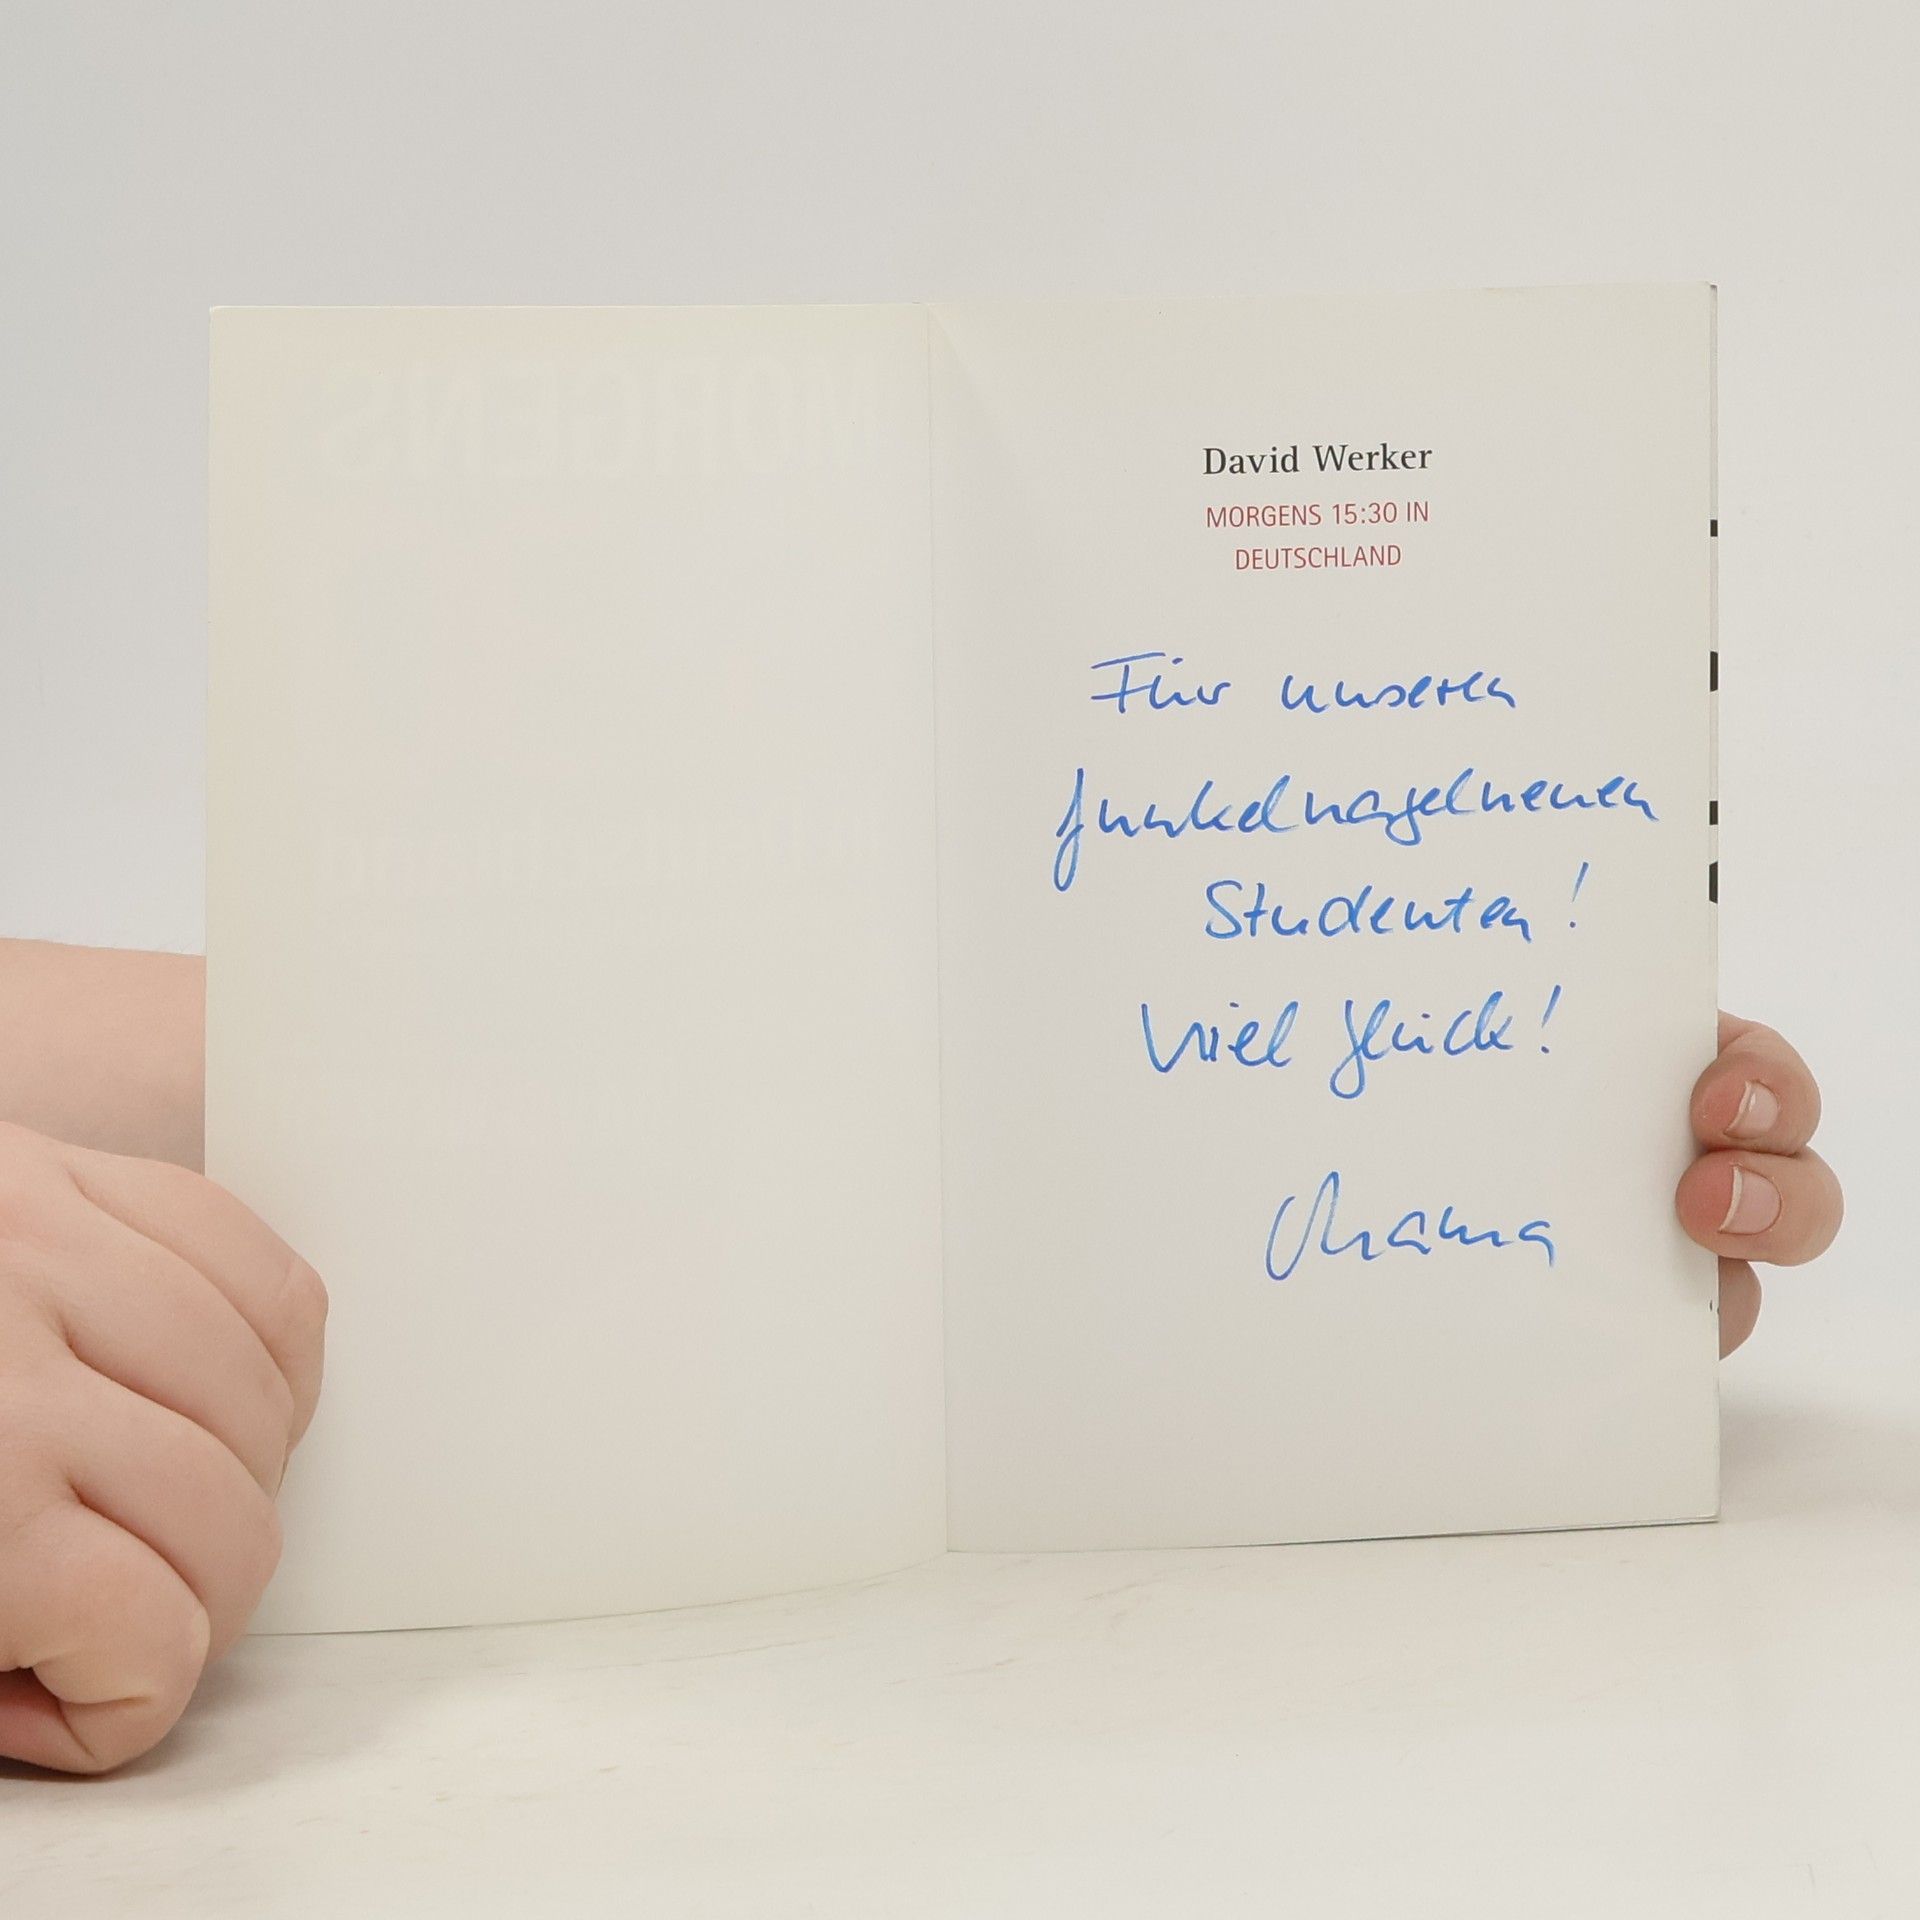 MORGENS
David Werker
MORGENS 15:30 IN
DEUTSCHLAND
Für unseren
funkelnagelneuen
Studenten!
Viel Glück!
Mama